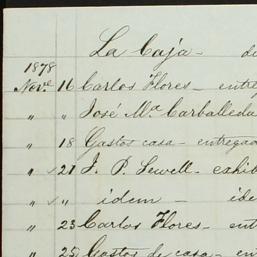 La Caja - de
1878
Nov.e 16 Carlos Flores - entre
" " José Ma. Carballeda
" 18 Gastos casa - entregad
" 21 J. P. Sewell - exhib
" " idem - ide
" 23 Carlos Flores - ent
" 25 Gastos de casa - ent